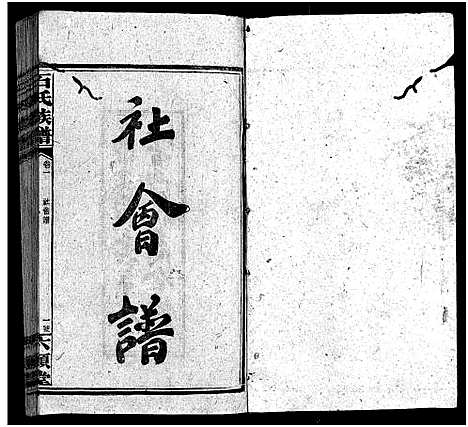 社會譜
石氏族譜
卷一
社會譜
一號
六順堂